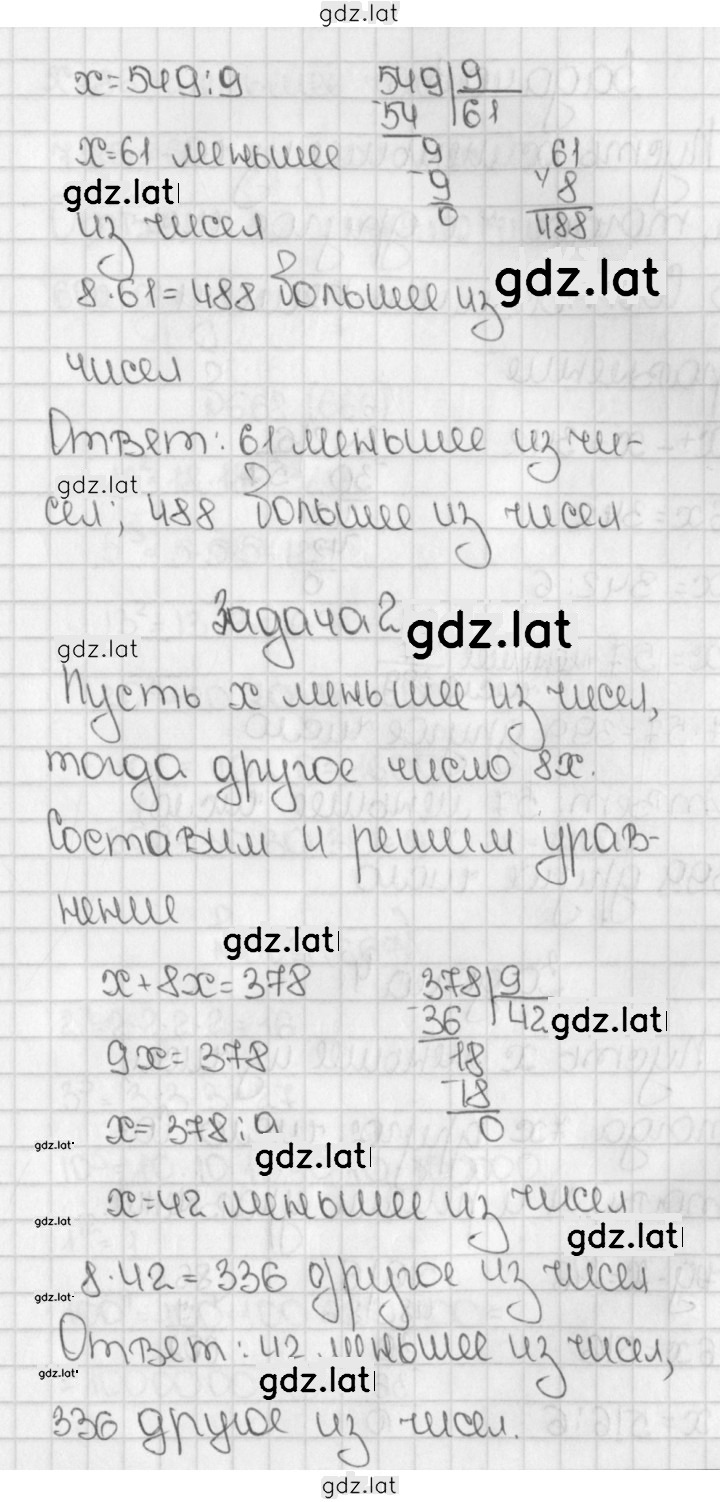 gdz.lat
x=549:9 549|9
-54 |61
x=61 меньшее 9 61
gdz.lat -9 × 8
из чисел 0 488
8·61=488 большее из gdz.lat
чисел
Ответ: 61 меньшее из чи-
gdz.lat
сел; 488 большее из чисел
Задача 2 gdz.lat
gdz.lat
Пусть x меньшее из чисел,
тогда другое число 8x.
Составим и решим урав-
нение
gdz.lat
x+8x=378 378|9
-36 |42 gdz.lat
9x=378 18
-18
x=378:9 0
gdz.lat gdz.lat
x=42 меньшее из чисел
gdz.lat gdz.lat
8·42=336 другое из чисел
gdz.lat
Ответ: 42 меньшее из чисел,
gdz.lat gdz.lat
336 другое из чисел.
gdz.lat